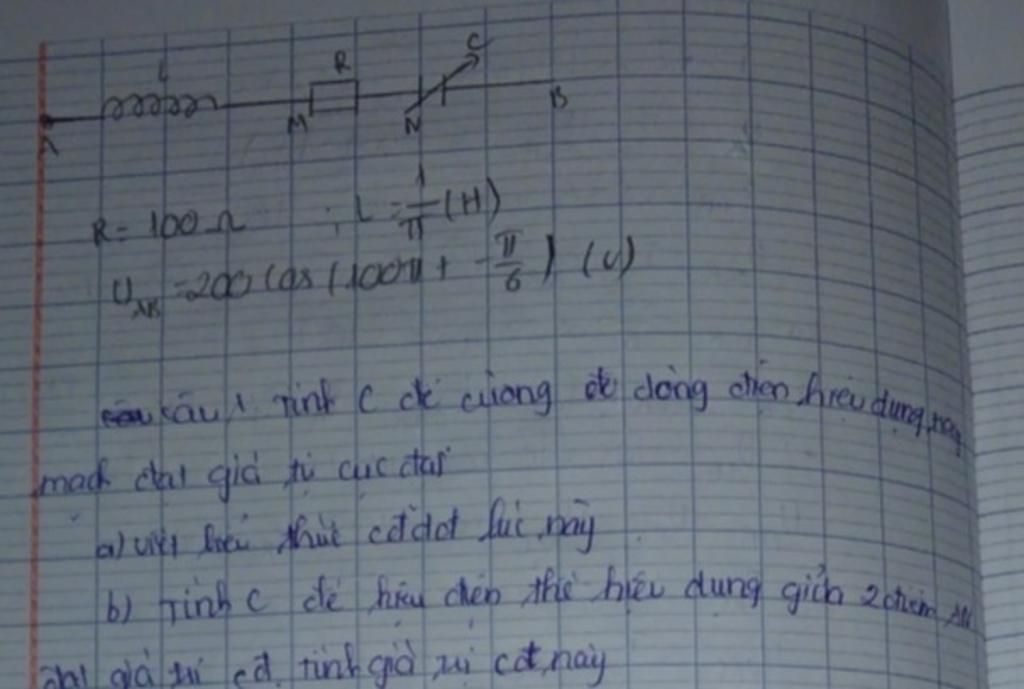 L R C
A M N B
R = 100Ω ; L = 1/π (H)
U_AB = 200 cos (100πt + -π/6) (V)
câu 1 Tính C để cường độ dòng điện hiệu dụng
mạch đạt giá trị cực đại
a) viết biểu thức cđdđ lúc này
b) Tính C để hiệu điện thế hiệu dụng giữa 2 điểm
đạt giá trị cđ. Tính giá trị cđ này